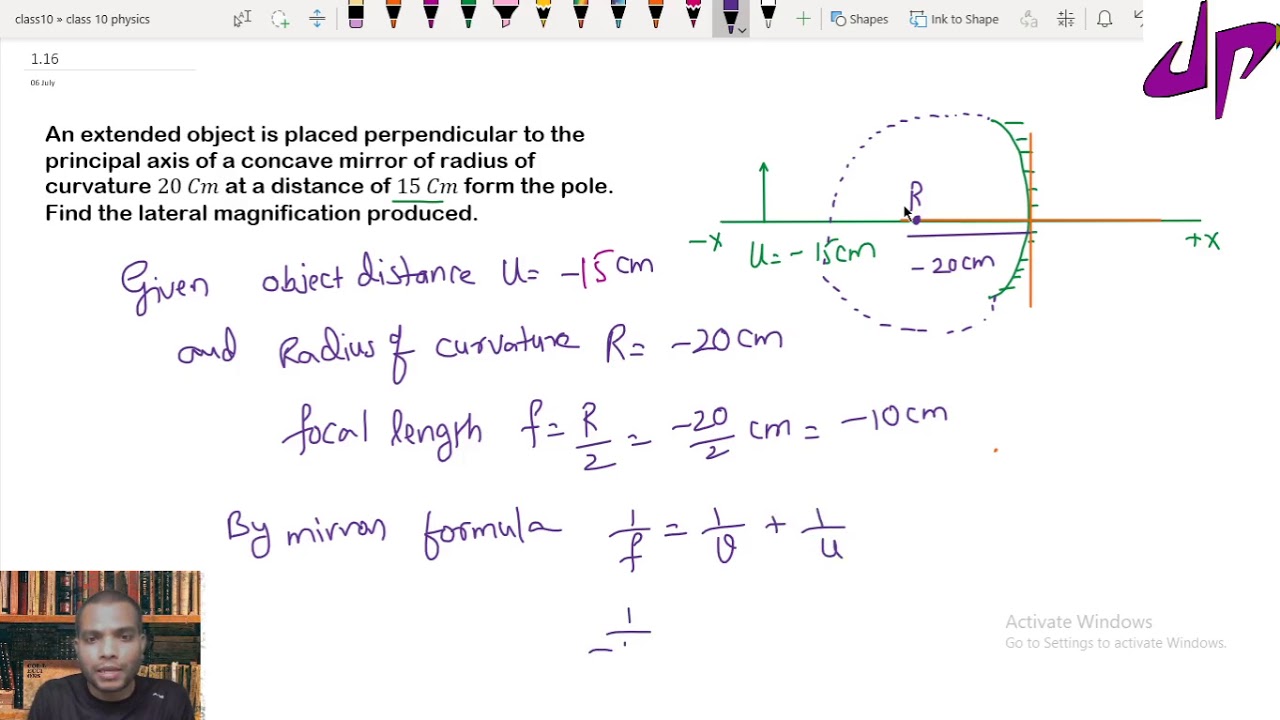 class10 » class 10 physics
Shapes
Ink to Shape
1.16
06 July
dp
An extended object is placed perpendicular to the
principal axis of a concave mirror of radius of
curvature 20 Cm at a distance of 15 Cm form the pole.
Find the lateral magnification produced.
R
-x
+x
U = - 15cm
- 20cm
Given object distance U = -15 cm
and Radius of curvature R = -20 cm
focal length f = R/2 = -20/2 cm = -10 cm
By mirror formula 1/f = 1/v + 1/u
1
Activate Windows
Go to Settings to activate Windows.